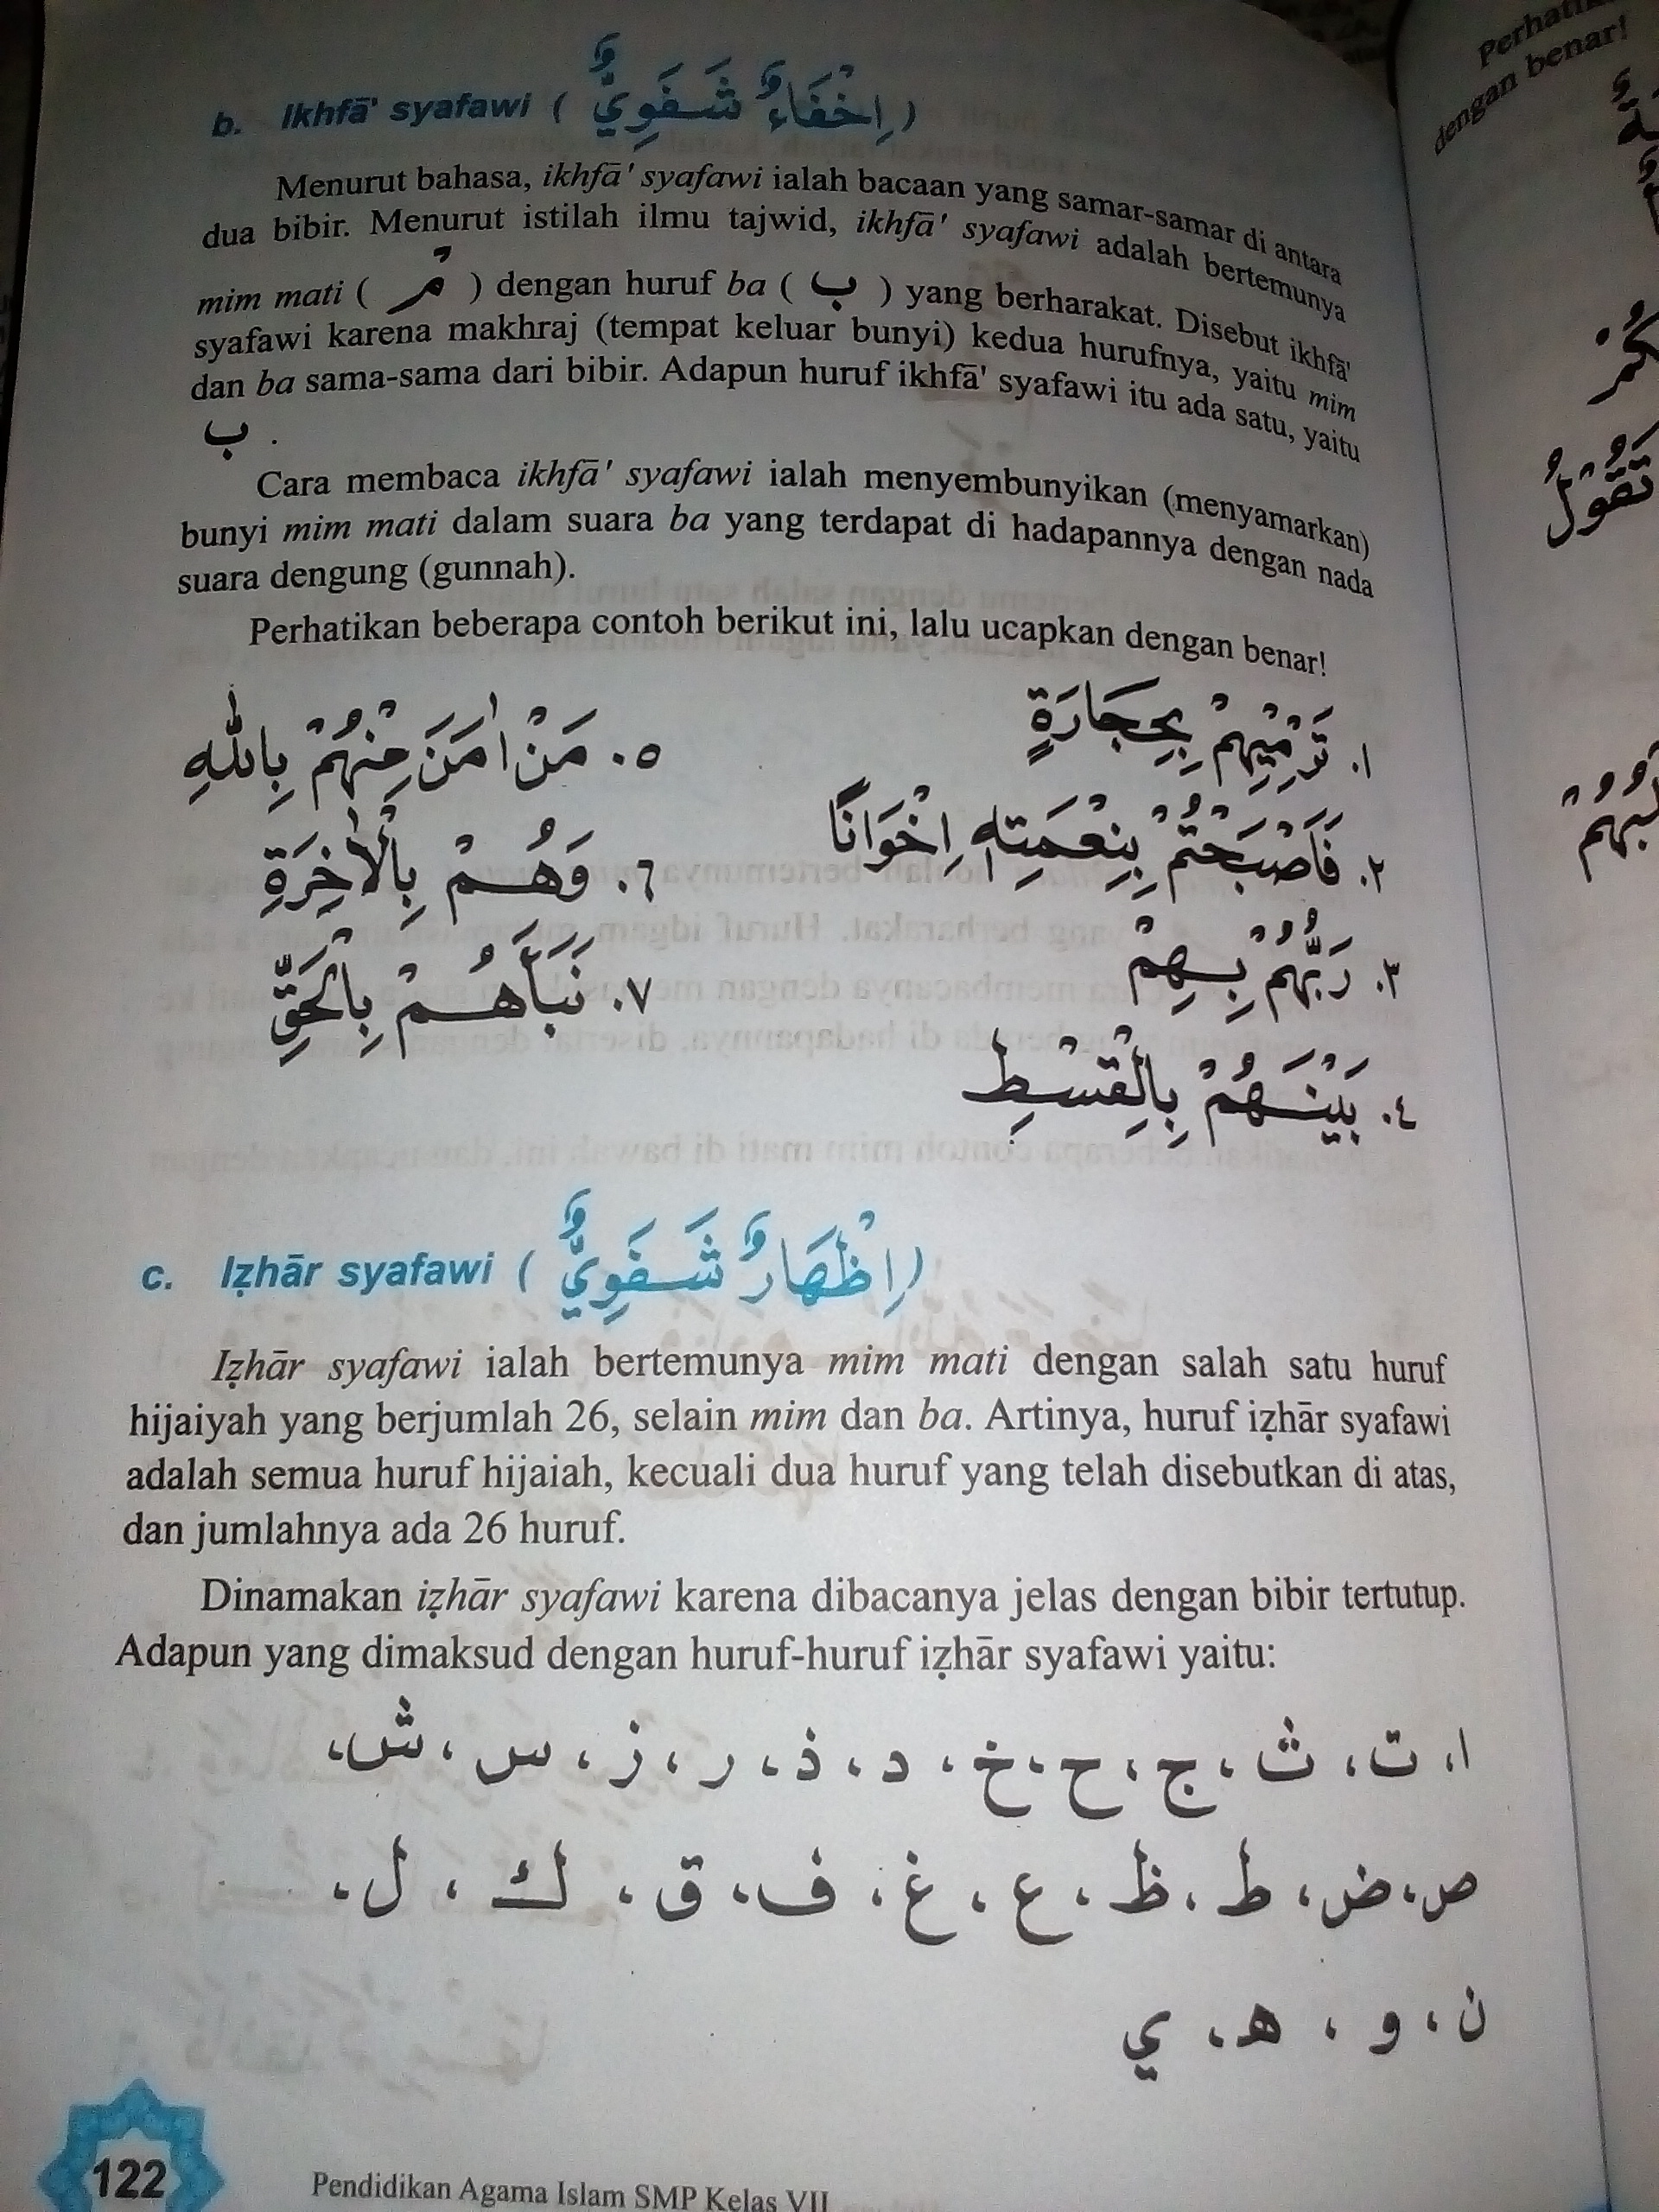 b. Ikhfā' syafawi ( اِخْفَاءٌ شَفَوِيٌّ )
Menurut bahasa, ikhfā' syafawi ialah bacaan yang samar-samar di antara
dua bibir. Menurut istilah ilmu tajwid, ikhfā' syafawi adalah bertemunya
mim mati ( مْ ) dengan huruf ba ( ب ) yang berharakat. Disebut ikhfā'
syafawi karena makhraj (tempat keluar bunyi) kedua hurufnya, yaitu mim
dan ba sama-sama dari bibir. Adapun huruf ikhfā' syafawi itu ada satu, yaitu
ب .
Cara membaca ikhfā' syafawi ialah menyembunyikan (menyamarkan)
bunyi mim mati dalam suara ba yang terdapat di hadapannya dengan nada
suara dengung (gunnah).
Perhatikan beberapa contoh berikut ini, lalu ucapkan dengan benar!
١. تَرْمِيْهِمْ بِحِجَارَةٍ
٢. فَاَصْبَحْتُمْ بِنِعْمَتِهٖ اِخْوَانًا
٣. رَبُّهُمْ بِهِمْ
٤. بَيْنَهُمْ بِالْقِسْطِ
٥. مَنْ اٰمَنَ مِنْهُمْ بِاللّٰهِ
٦. وَهُمْ بِالْاٰخِرَةِ
٧. نَبَاَهُمْ بِالْحَقِّ
c. Iẓhār syafawi ( اِظْهَارٌ شَفَوِيٌّ )
Iẓhār syafawi ialah bertemunya mim mati dengan salah satu huruf
hijaiyah yang berjumlah 26, selain mim dan ba. Artinya, huruf iẓhār syafawi
adalah semua huruf hijaiah, kecuali dua huruf yang telah disebutkan di atas,
dan jumlahnya ada 26 huruf.
Dinamakan iẓhār syafawi karena dibacanya jelas dengan bibir tertutup.
Adapun yang dimaksud dengan huruf-huruf iẓhār syafawi yaitu:
ا، ت، ث، ج، ح، خ، د، ذ، ر، ز، س، ش،
ص، ض، ط، ظ، ع، غ، ف، ق، ك، ل،
ن، و، ه، ي
122
Pendidikan Agama Islam SMP Kelas VII
dengan benar!
تَقُوْلُ